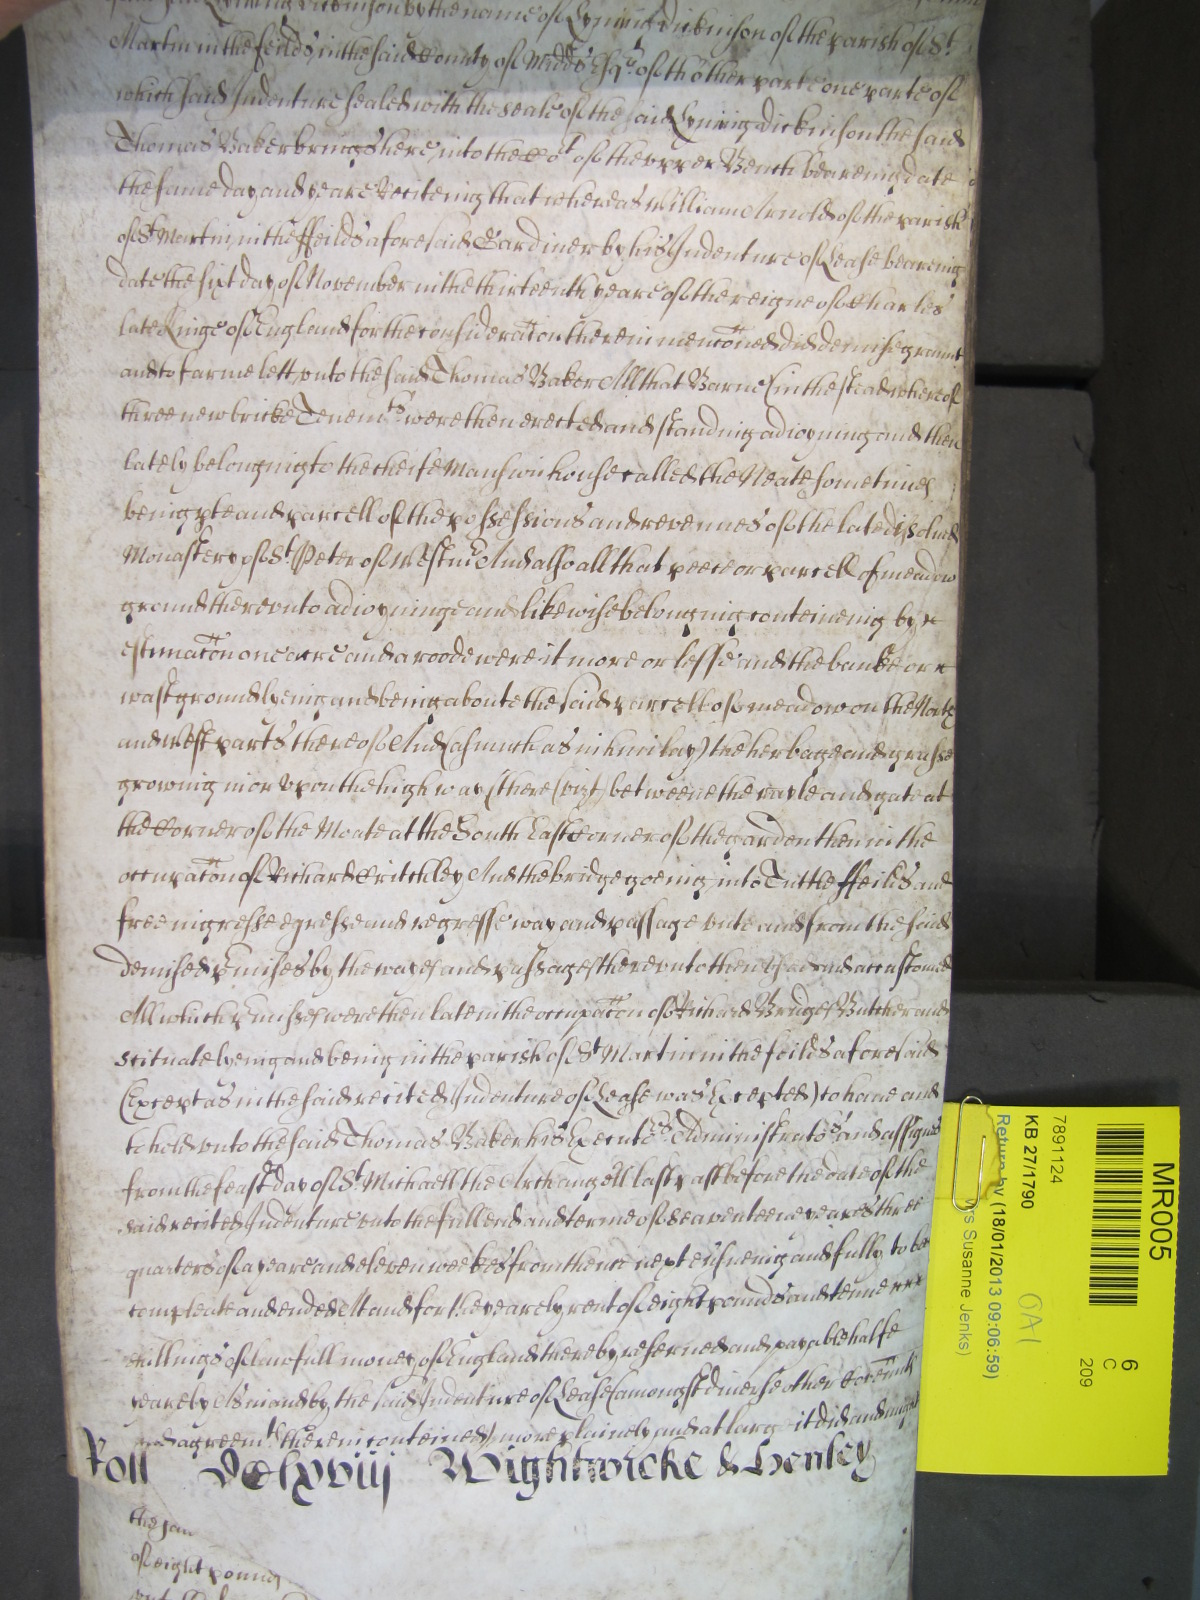 dickinson by the name of Lyning dickinson of the parish of St
Martin in the feilds in the said County of Midds Esqr of thother parte one parte of
which said Indenture sealed with the seale of the said Lyning dickinson the said
Thomas Baker brings here into the Cot of the upper Bench beareing date
the same day and yeare Reciteing that whereas William Arnold of the parish
of St Martin in the ffeilds aforesaid Gardiner by his Indenture of Lease beareing
date the sixt day of November in the thirteenth yeare of the reigne of Charles
late Kinge of England for the consideracon therein menconed did demise graunt
and to farme lett unto the said Thomas Baker All that Barne (in the stead whereof
three new bricke Tenemts were then erected and standing adioyning and then
lately belonging to the cheife Mansion house called the Neate sometimes
being pte and parcell of the possessions and revennes of the late disolved
Monastery of St Peter of Westmr And also all that peece or parcell of meadow
ground thereunto adioyninge and likewise belonging conteineing by
estimacon one acre and a roode were it more or lesse and the banke or
wast ground lyeing and being aboute the said parcell of meadow on the North
and West parts thereof And (asmuch as in him lay) the herbage and grasse
growing in or upon the high way there (vizt) betweene the and gate at
the Corner of the Moate at the South East corner of the garden then in the
occupacon of Richard Critchley And the bridge goeing into Tuttle ffeilds and
free ingresse egresse and regresse way and passage unto and from the said
demised pmises by the wayes and passages thereunto then used and accustomed
All which pmisses were then late in the occupacon of Richard Bridges Butcher and
scituate lyeing and being in the parish of St Martin in the feilds aforesaid
(Except as in the said recited Indenture of Lease was Excepted) to have and
to hold unto the said Thomas Baker his Executors Administrators and assignes
from the feast day of St Michaell the Archangell last past before the date of the
said recited Indenture unto the full end and terme of seaventeene yeares three
quarters of a yeare and eleven weekes from thence next ensueing and fully to be
compleate and ended At and for the yearely rent of eight pounds and tenne
shillings of lawfull money of England thereby reserved and payable halfe
yearely As in and by the said Indenture of Lease (amongst diverse other Covennts
and agreemts therein conteined) more plainely and at large it did and might
Roll Wightwicke & Henley
the said
of eight pounds
MR005
6
C
209
7891124
KB 27/1790
OA1
Return by (18/01/2013 09:06:59)
Mrs Susanne Jenks)